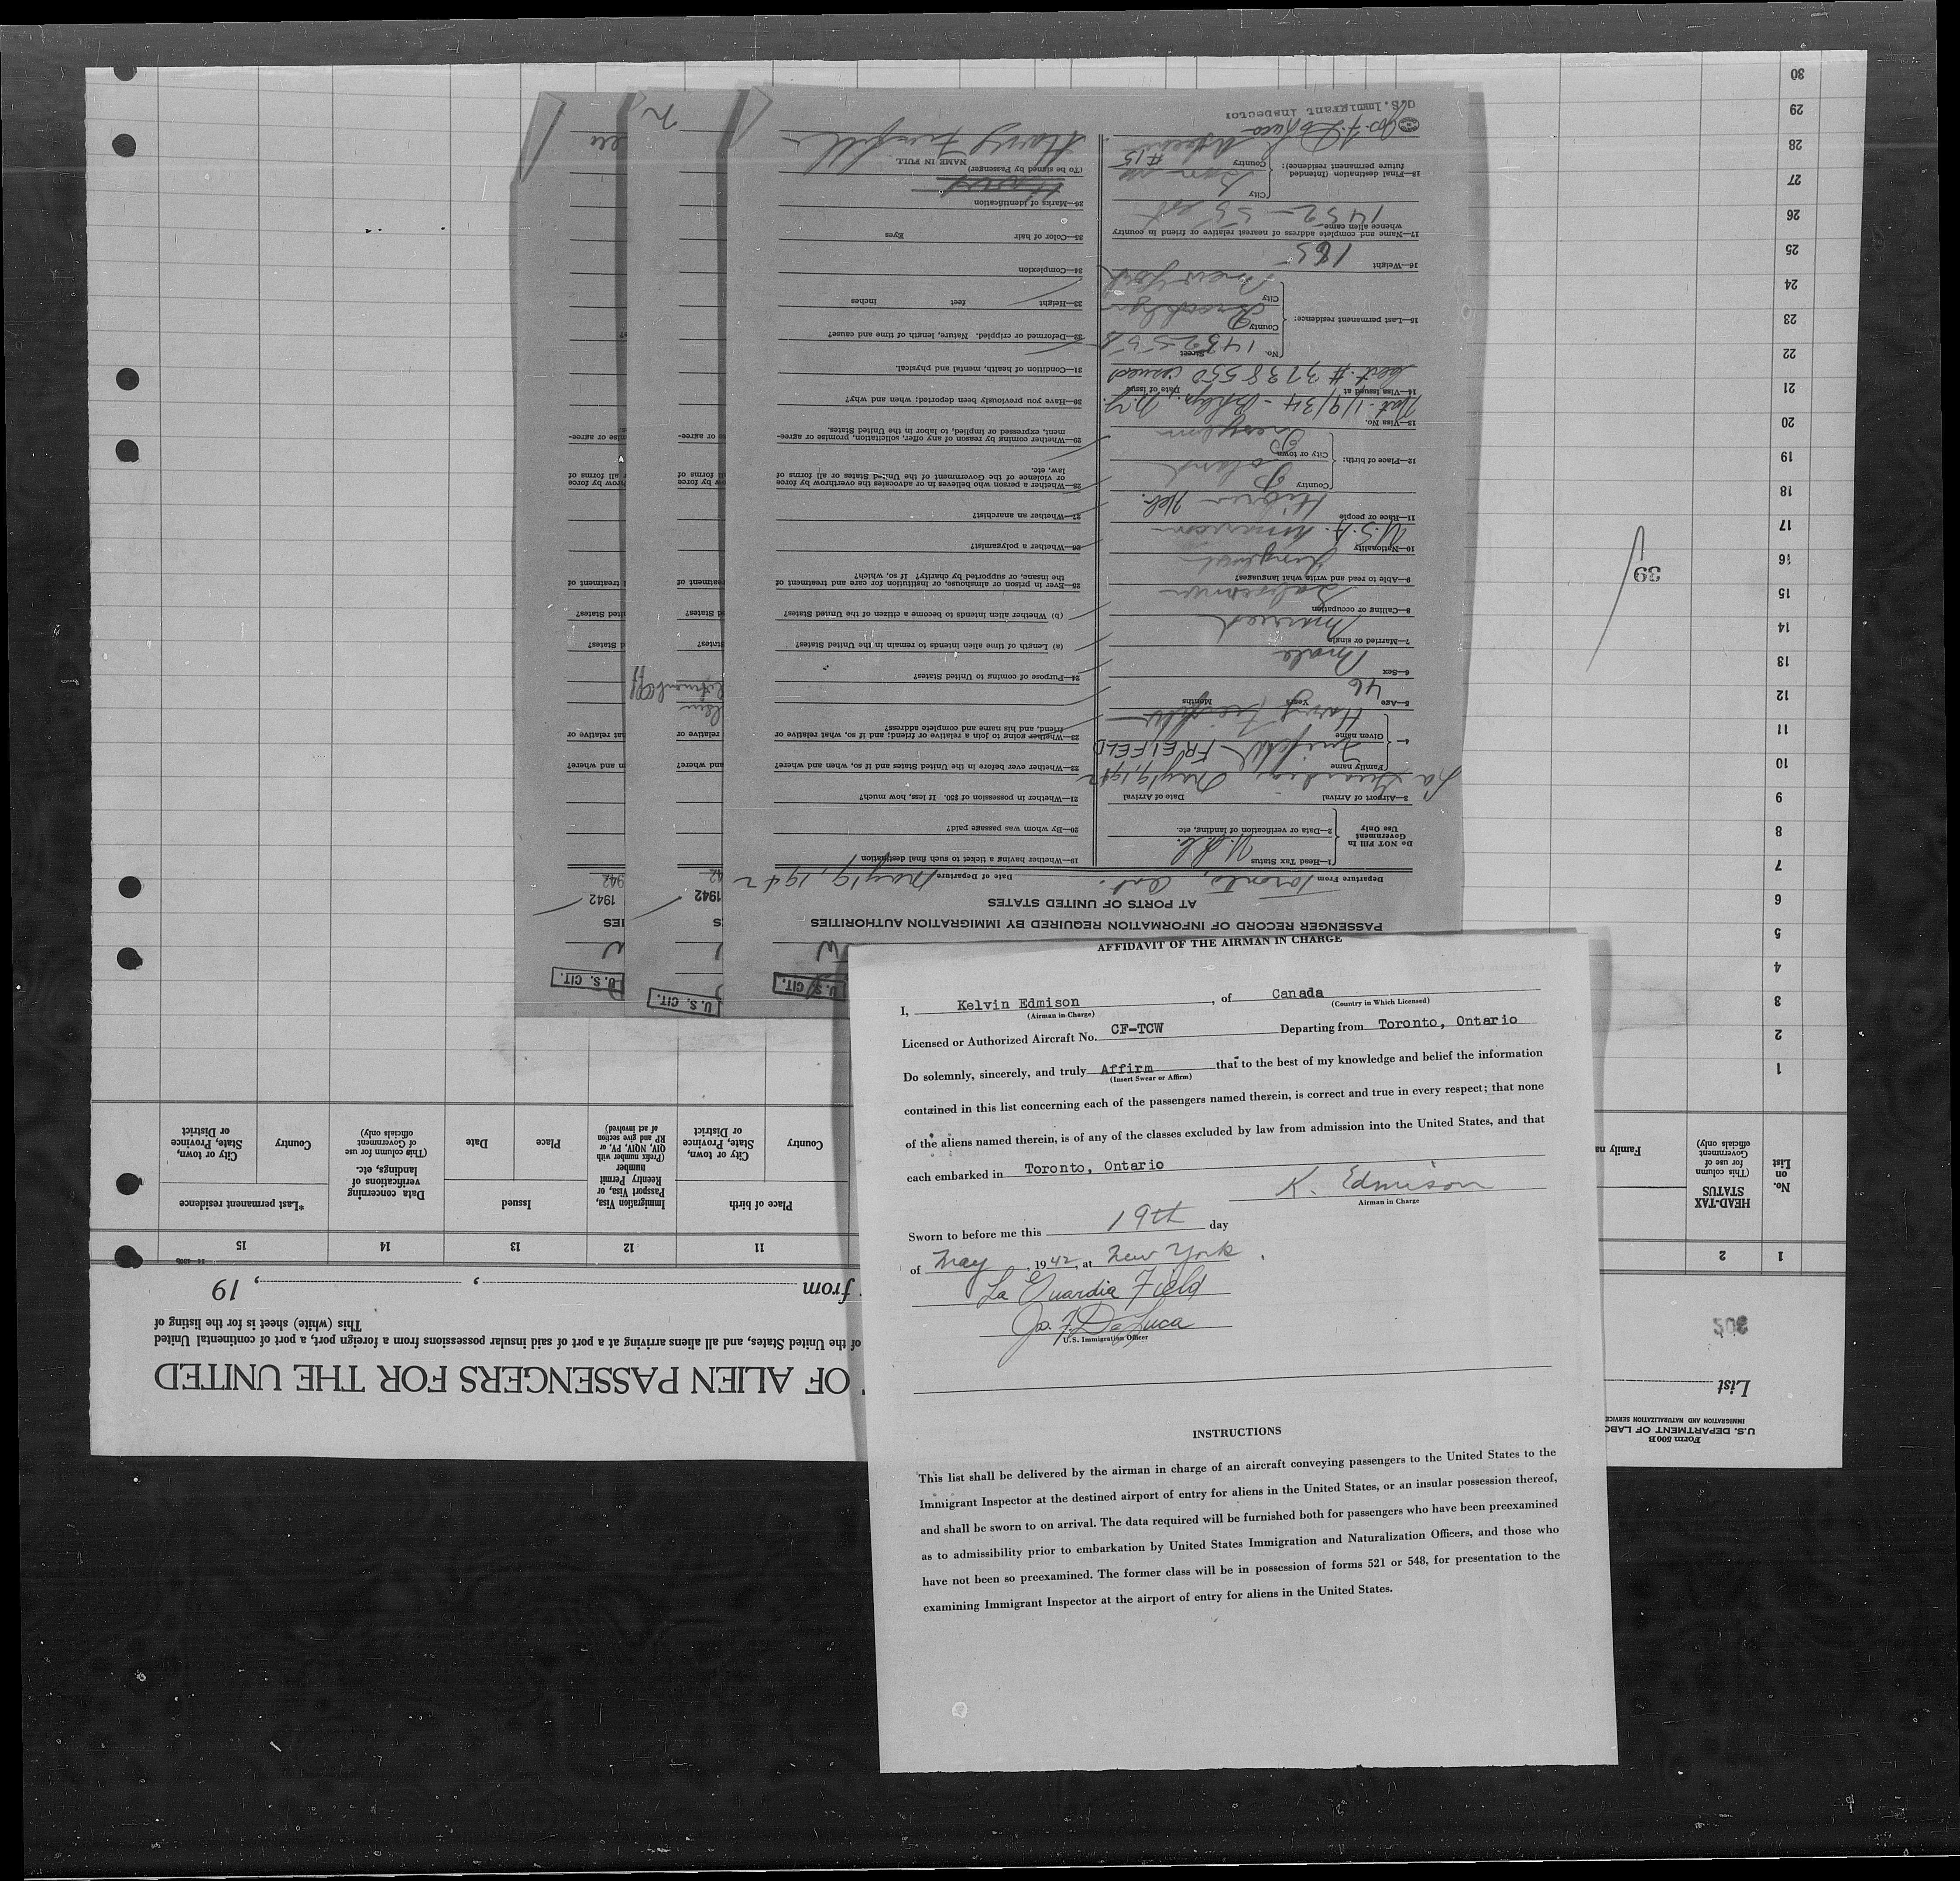 AFFIDAVIT OF THE AIRMAN IN CHARGE
I, Kelvin Edmison, of Canada
(Airman in Charge) (Country in Which Licensed)
Licensed or Authorized Aircraft No. CF-TCW Departing from Toronto, Ontario
Do solemnly, sincerely, and truly Affirm that to the best of my knowledge and belief the information
(Insert Swear or Affirm)
contained in this list concerning each of the passengers named therein, is correct and true in every respect; that none
of the aliens named therein, is of any of the classes excluded by law from admission into the United States, and that
each embarked in Toronto, Ontario
K. Edmison
Airman in Charge
Sworn to before me this 19th day
of May, 1942, at New York.
La Guardia Field
Jos. F. DeLuca
U.S. Immigration Officer
INSTRUCTIONS
This list shall be delivered by the airman in charge of an aircraft conveying passengers to the United States to the
Immigrant Inspector at the destined airport of entry for aliens in the United States, or an insular possession thereof,
and shall be sworn to on arrival. The data required will be furnished both for passengers who have been preexamined
as to admissibility prior to embarkation by United States Immigration and Naturalization Officers, and those who
have not been so preexamined. The former class will be in possession of forms 521 or 548, for presentation to the
examining Immigrant Inspector at the airport of entry for aliens in the United States.
U. S. CIT.
U. S. CIT.
U. S. CIT.
PASSENGER RECORD OF INFORMATION REQUIRED BY IMMIGRATION AUTHORITIES
AT PORTS OF UNITED STATES
Departure From Toronto, Ont. Date of Departure May 19, 1942
DO NOT Fill In
Government
Use Only
1—Head Tax Status
2—Data or verification of landing, etc.
3—Airport of Arrival Date of Arrival
La Guardia May 19, 1942
4— Family name Freifeld FREIFELD
Given name Harry
5—Age 46 Years Months
6—Sex Male
7—Married or single Married
8—Calling or occupation Salesman
9—Able to read and write what languages?
10—Nationality U.S.A. American
11—Race or people Hebrew Heb.
12—Place of birth: Country Poland
City or town
13—Visa No. Nat. 1/9/34 - Bklyn, N.Y.
14—Visa issued at Date of issue
Cert. # 3738550 issued
15—Last permanent residence: No. 1432 55 Street
County Brooklyn
City New York
16—Weight 165
17—Name and complete address of nearest relative or friend in country
whence alien came—
1432 - 55 st
18—Final destination (Intended
future permanent residence): City
Country
#15
Jos. F. DeLuca
U.S. Immigrant Inspector
19—Whether having a ticket to such final destination
20—By whom was passage paid?
21—Whether in possession of $50. If less, how much?
22—Whether ever before in the United States and if so, when and where?
23—Whether going to join a relative or friend; and if so, what relative or
friend, and his name and complete address?
24—Purpose of coming to United States?
(a) Length of time alien intends to remain in the United States?
(b) Whether alien intends to become a citizen of the United States?
25—Ever in prison or almshouse, or institution for care and treatment of
the insane, or supported by charity? If so, which?
26—Whether a polygamist?
27—Whether an anarchist?
28—Whether a person who believes in or advocates the overthrow by force
or violence of the Government of the United States or all forms of
law, etc.
29—Whether coming by reason of any offer, solicitation, promise or agree-
ment, expressed or implied, to labor in the United States.
30—Have you previously been deported; when and why?
31—Condition of health, mental and physical.
32—Deformed or crippled. Nature, length of time and cause?
33—Height feet inches
34—Complexion
35—Color of hair Eyes
36—Marks of identification
(To be signed by Passenger)
NAME IN FULL
Harry Freifeld
Form 500B
U.S. DEPARTMENT OF LABO
IMMIGRATION AND NATURALIZATION SERVICE
List
208
OF ALIEN PASSENGERS FOR THE UNITED
of the United States, and all aliens arriving at a port of said insular possessions from a foreign port, a port of continental United
This (white) sheet is for the listing of
from , , 19
1 2 11 12 13 14 15
No.
on
List
HEAD-TAX
STATUS
(This column
for use of
Government
officials only)
Family na
Place of birth
Country
City or town,
State, Province
or District
Immigration Visa,
Passport Visa, or
Reentry Permit
number
(Prefix number with
QIV, NQIV, PV, or
RP and give section
of act involved)
Issued
Place
Date
Data concerning
verifications of
landings, etc.
(This column for use
of Government
officials only)
*Last permanent residence
Country
City or town,
State, Province
or District
1
2
3
4
5
6
7
8
9
10
11
12
13
14
15
16
17
18
19
20
21
22
23
24
25
26
27
28
29
30
39